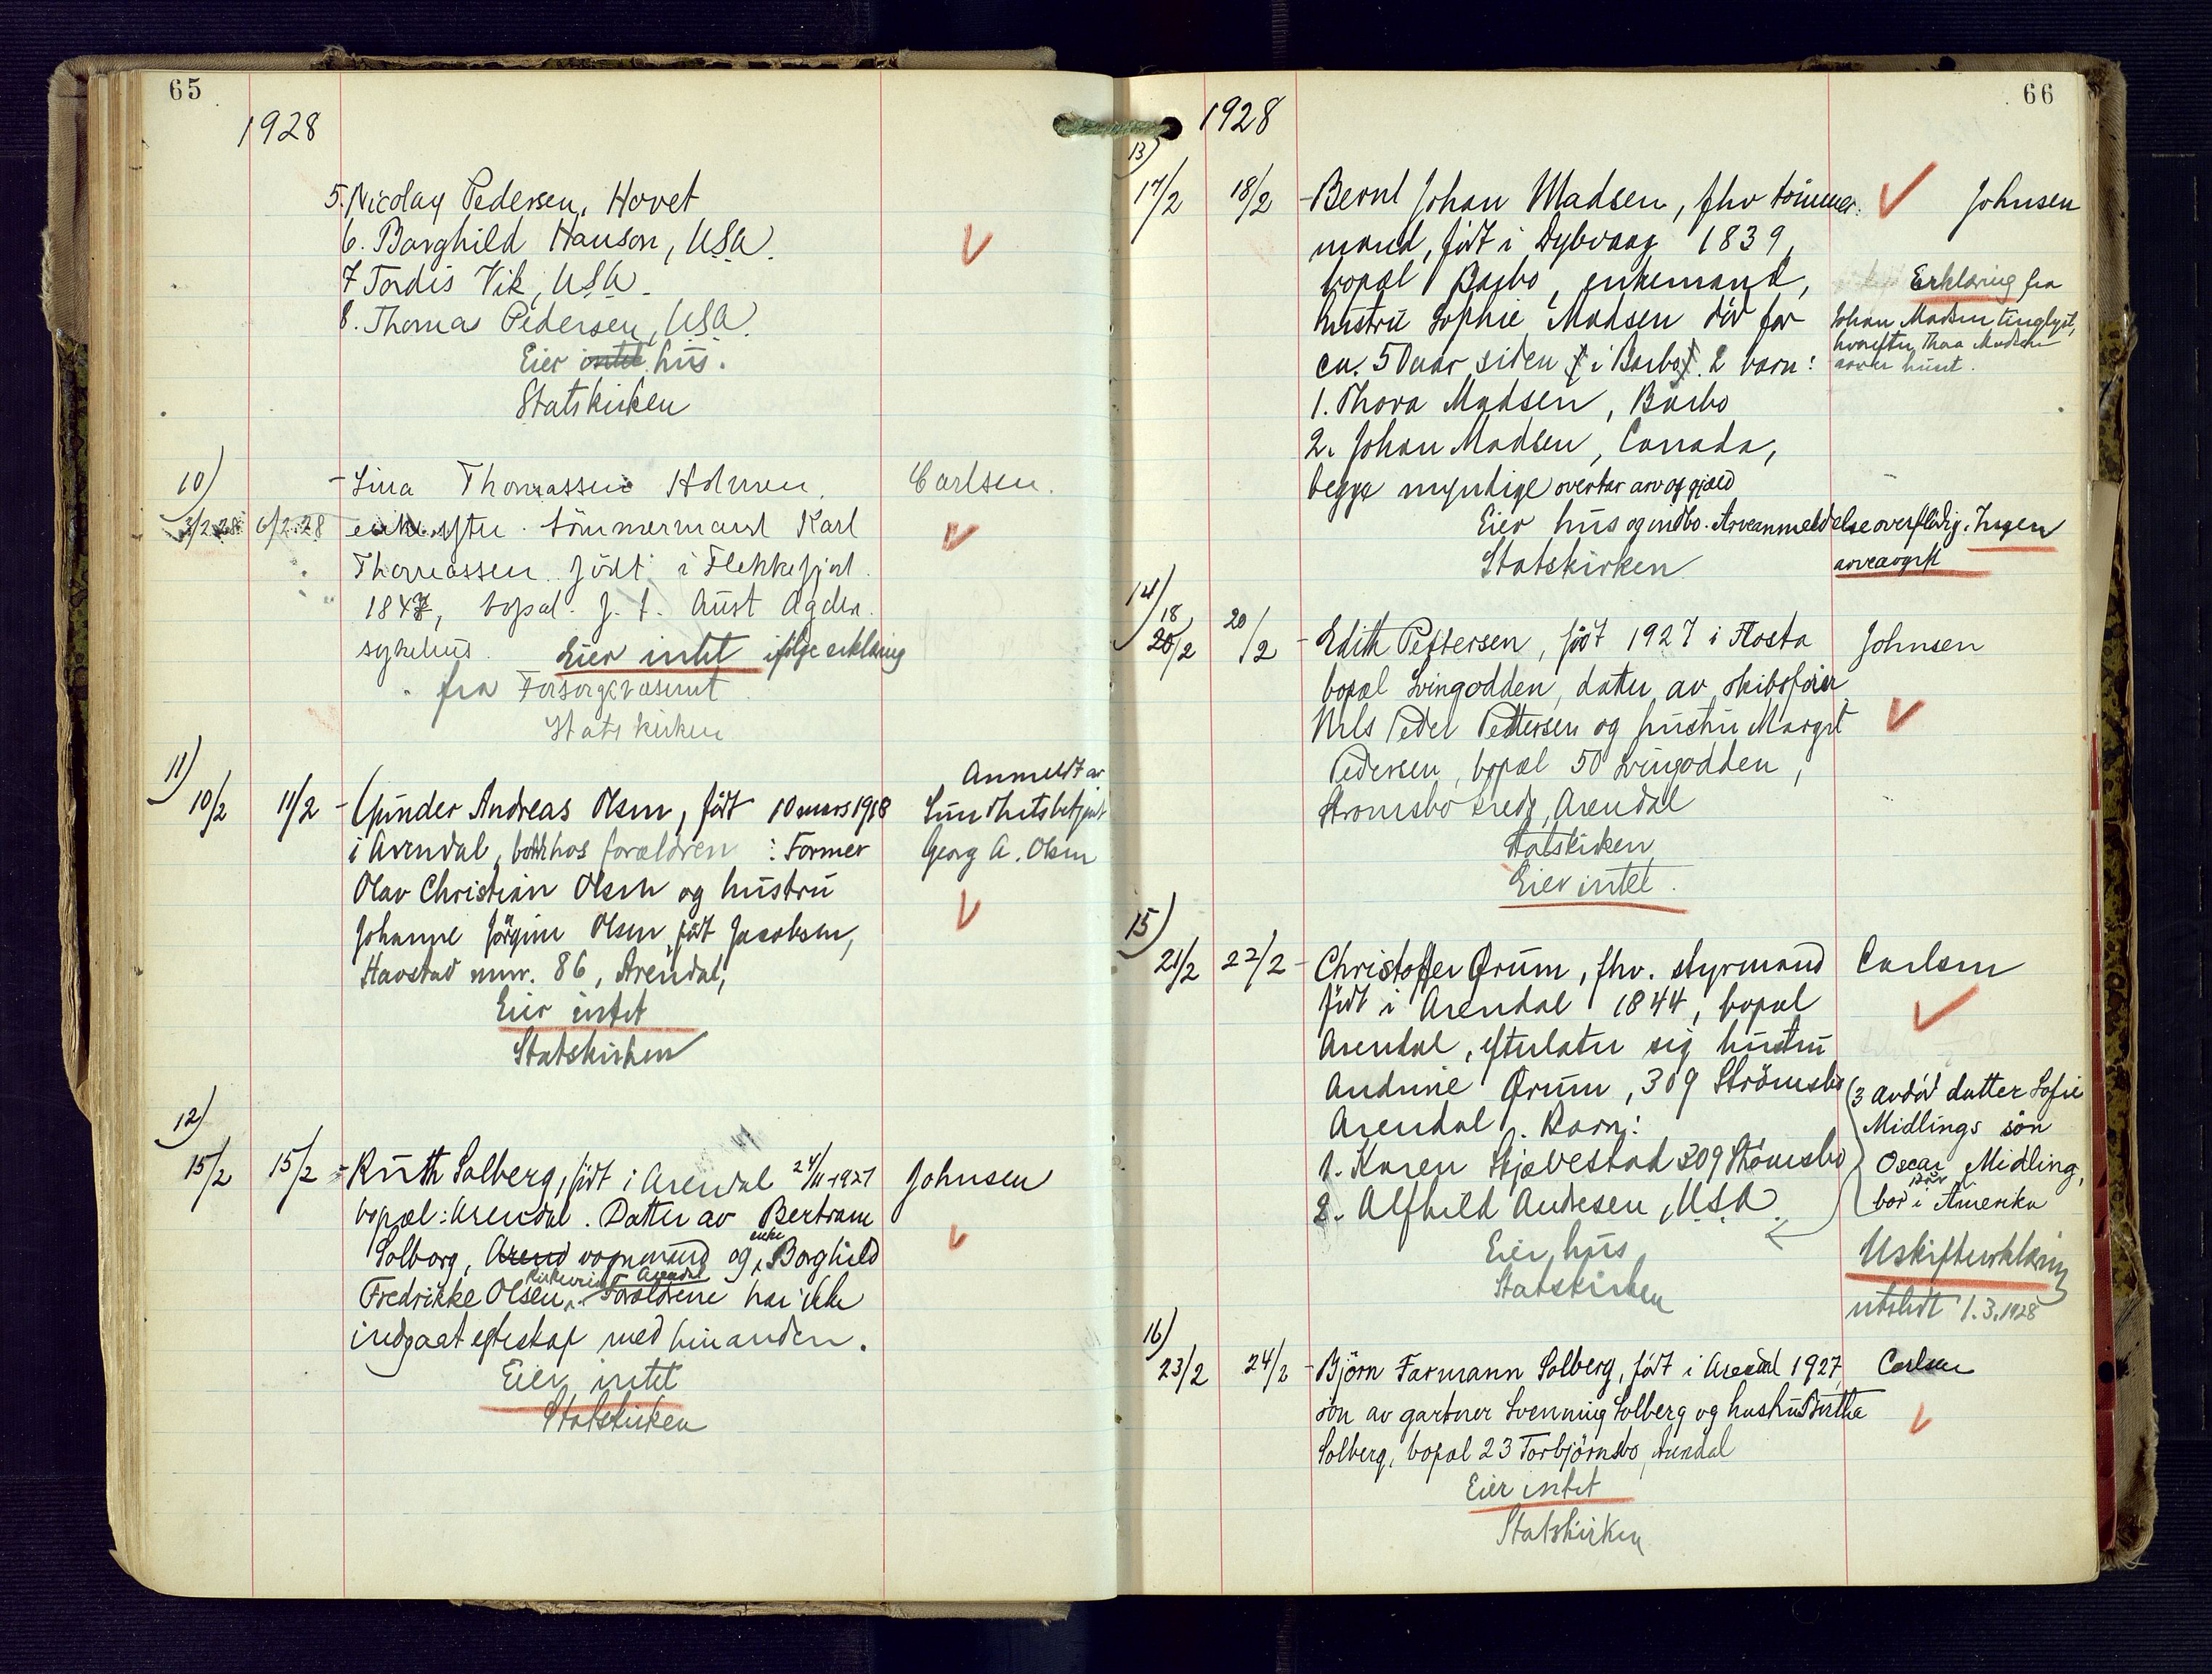 65
1928
5. Nicolay Pedersen, Hovet
6. Borghild Hanson, USA.
7 Tordis Vik, USA.
8. Thoma Pedersen, USA.
Eier intet hus.
Statskirken
10)
3/2 28 6/2.28 - Lina Thomassen Holmen, Carlsen.
enke efter tömmermand Karl
Thomassen födt i Flekkefjord.
1847, bopæl. f. t. Aust Agder.
sykehus. Eier intet ifölge erklæring
fra Forsorgsvæsenet
Statskirken
11)
10/2 11/2 - Gunder Andreas Olsen, födt 10 mars 1918
i Arendal, bodde hos forældren : Former
Olav Christian Olsen og hustru
Johanne Jörgine Olsen födt Jacobsen,
Havstad mnr. 86, Arendal,
Anmeldt av
Sundhetsbetjent
Georg A. Olsen
Eier intet
Statskirken
12)
15/2 15/2 - Ruth Solberg, födt i Arendal 24/11-1927 Johnsen
bopæl: Arendal. Datter av Bertram
Solborg, Arend vognmand og enke Borghild
Fredrikke Olsen, Arendal Forældrene har ikke
indgaat egteskap med hinanden.
Eier intet
Statskirken
66
1928
13)
17/2 18/2 - Bernt Johan Madsen, fhv tömmer: Johnsen
mand, födt i Dybvaag 1839,
bopæl Barbo, enkemand,
hustru Sophie Madsen död for
ca. 50 aar siden i Barbo. 2 barn:
1. Thora Madsen, Barbo
2. Johan Madsen, Canada,
begge myndige overtar arv og gjæld
Erklæring fra
Johan Madsen tinglyst,
hvorefter Thora Madsen
arver huset.
Eier hus og indbo. Arveanmeldelse overflödig. Ingen
arveavgift
Statskirken
14)
18
20/2 20/2 - Edith Pettersen, födt 1927 i Flosta Johnsen
bopæl Svingodden, datter av skibsförer
Nils Peder Pettersen og hustru Margit
Pedersen, bopæl 50 Svingodden,
Stromsbo krets, Arendal
Statskirken
Eier intet.
15)
21/2 22/2 - Christoffer Ørum, fhv. styrmand Carlsen
födt i Arendal 1844, bopæl
Arendal, efterlater sig hustru
Andrine Ørum, 309 Strömsbo
Arendal. Barn:
1. Karen Skjævestad 309 Strömsbo
2. Alfhild Andresen, USA.
(3 avdöd datter Sofie
Midlings sön
Oscar Midling,
bor i Amerika
Eier hus
Statskirken
Uskifterklæring
utstedt 1.3.1928
16)
23/2 24/2 - Björn Farmann Solberg, födt i Arendal 1927, Carlsen
sön av gartner Svenning Solberg og hustru Berthe
Solberg, bopæl 23 Torbjörnsbo, Arendal
Eier intet
Statskirken